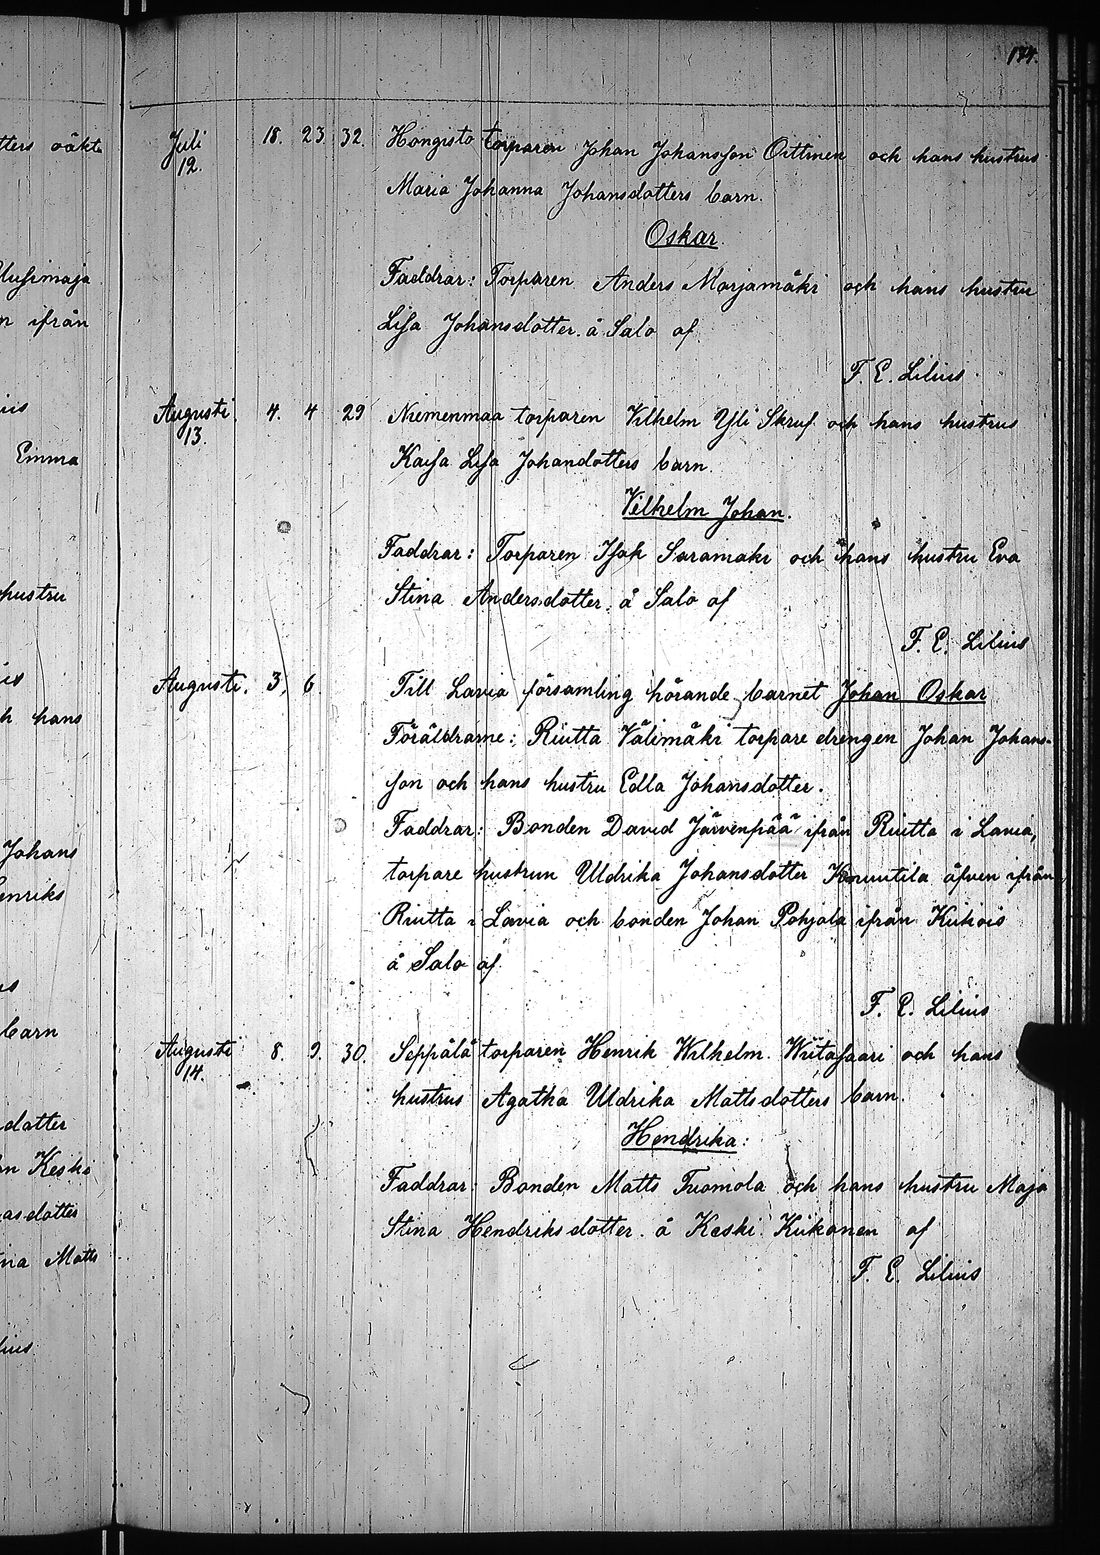 134.
tters oäkta
Juli 18. 23. 32. Hongisto torparen Johan Johansson Oittinen och hans hustrus
12.
Maria Johanna Johansdotters barn.
Oskar.
Faddrar: Torparen Anders Marjamäki och hans hustru
Lisa Johansdotter å Salo af
F. E. Lilius
n ifrån
Augusti 4. 4 29 Niemenmaa torparen Vilhelm Yli Skruf och hans hustrus
13.
Emma
Kaisa Lisa Johandotters barn.
Vilhelm Johan.
Faddrar: Torparen Isak Saramaki och hans hustru Eva
hustru
Stina Andersdotter å Salo af
F. E. Lilius
Augusti. 3, 6. Till Lavia församling hörande barnet Johan Oskar
h hans
Föräldrarne: Riutta Välimäki torpare drengen Johan Johans-
son och hans hustru Edla Johansdotter.
Faddrar: Bonden David Järvenpää ifrån Riutta i Lavia,
Johans
torpare hustrun Uldrika Johansdotter Knuutila äfven ifrån
enriks
Riutta i Lavia och bonden Johan Pohjola ifrån Kukois
å Salo af
F. E. Lilius
barn
Augusti 8. 9. 30. Seppälä torparen Henrik Wilhelm Wiitasaari och hans
14.
hustrus Agatha Uldrika Mattsdotters barn.
dotter
Hendrika:
n Keski
Faddrar: Bonden Matts Tuomola och hans hustru Maja
asdotter
Stina Hendriksdotter å Keski Kiikonen af
na Matts
F. E. Lilius
lius